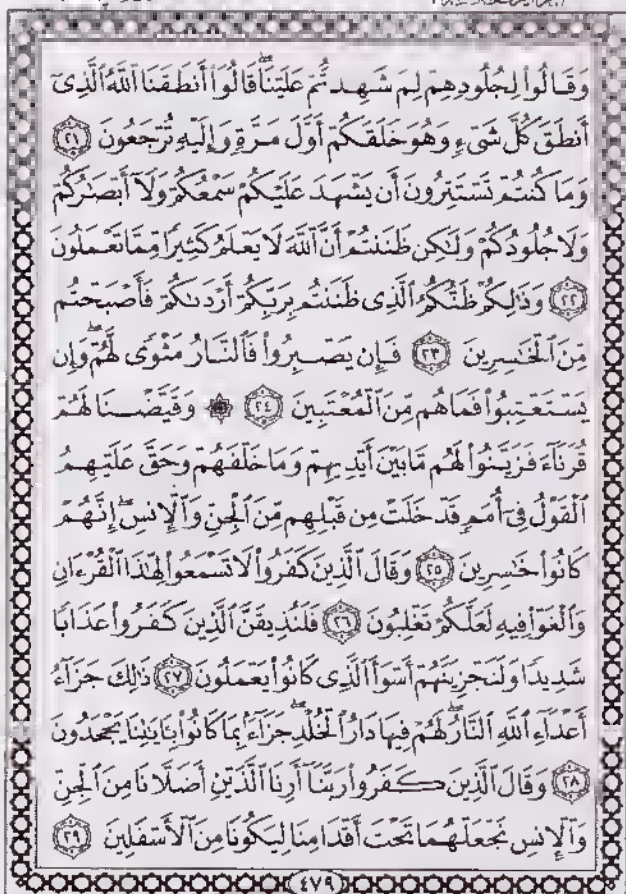 وَقَالُوا۟ لِجُلُودِهِمْ لِمَ شَهِدتُّمْ عَلَيْنَا ۖ قَالُوٓا۟ أَنطَقَنَا ٱللَّهُ ٱلَّذِىٓ
أَنطَقَ كُلَّ شَىْءٍ وَهُوَ خَلَقَكُمْ أَوَّلَ مَرَّةٍ وَإِلَيْهِ تُرْجَعُونَ ٢١
وَمَا كُنتُمْ تَسْتَتِرُونَ أَن يَشْهَدَ عَلَيْكُمْ سَمْعُكُمْ وَلَآ أَبْصَٰرُكُمْ
وَلَا جُلُودُكُمْ وَلَٰكِن ظَنَنتُمْ أَنَّ ٱللَّهَ لَا يَعْلَمُ كَثِيرًا مِّمَّا تَعْمَلُونَ
٢٢ وَذَٰلِكُمْ ظَنُّكُمُ ٱلَّذِى ظَنَنتُم بِرَبِّكُمْ أَرْدَىٰكُمْ فَأَصْبَحْتُم
مِّنَ ٱلْخَٰسِرِينَ ٢٣ فَإِن يَصْبِرُوا۟ فَٱلنَّارُ مَثْوًى لَّهُمْ ۖ وَإِن
يَسْتَعْتِبُوا۟ فَمَا هُم مِّنَ ٱلْمُعْتَبِينَ ٢٤ ۞ وَقَيَّضْنَا لَهُمْ
قُرَنَآءَ فَزَيَّنُوا۟ لَهُم مَّا بَيْنَ أَيْدِيهِمْ وَمَا خَلْفَهُمْ وَحَقَّ عَلَيْهِمُ
ٱلْقَوْلُ فِىٓ أُمَمٍ قَدْ خَلَتْ مِن قَبْلِهِم مِّنَ ٱلْجِنِّ وَٱلْإِنسِ ۖ إِنَّهُمْ
كَانُوا۟ خَٰسِرِينَ ٢٥ وَقَالَ ٱلَّذِينَ كَفَرُوا۟ لَا تَسْمَعُوا۟ لِهَٰذَا ٱلْقُرْءَانِ
وَٱلْغَوْا۟ فِيهِ لَعَلَّكُمْ تَغْلِبُونَ ٢٦ فَلَنُذِيقَنَّ ٱلَّذِينَ كَفَرُوا۟ عَذَابًا
شَدِيدًا وَلَنَجْزِيَنَّهُمْ أَسْوَأَ ٱلَّذِى كَانُوا۟ يَعْمَلُونَ ٢٧ ذَٰلِكَ جَزَآءُ
أَعْدَآءِ ٱللَّهِ ٱلنَّارُ ۖ لَهُمْ فِيهَا دَارُ ٱلْخُلْدِ ۖ جَزَآءًۢ بِمَا كَانُوا۟ بِـَٔايَٰتِنَا يَجْحَدُونَ
٢٨ وَقَالَ ٱلَّذِينَ كَفَرُوا۟ رَبَّنَآ أَرِنَا ٱلَّذَيْنِ أَضَلَّانَا مِنَ ٱلْجِنِّ
وَٱلْإِنسِ نَجْعَلْهُمَا تَحْتَ أَقْدَامِنَا لِيَكُونَا مِنَ ٱلْأَسْفَلِينَ ٢٩
٤٧٩